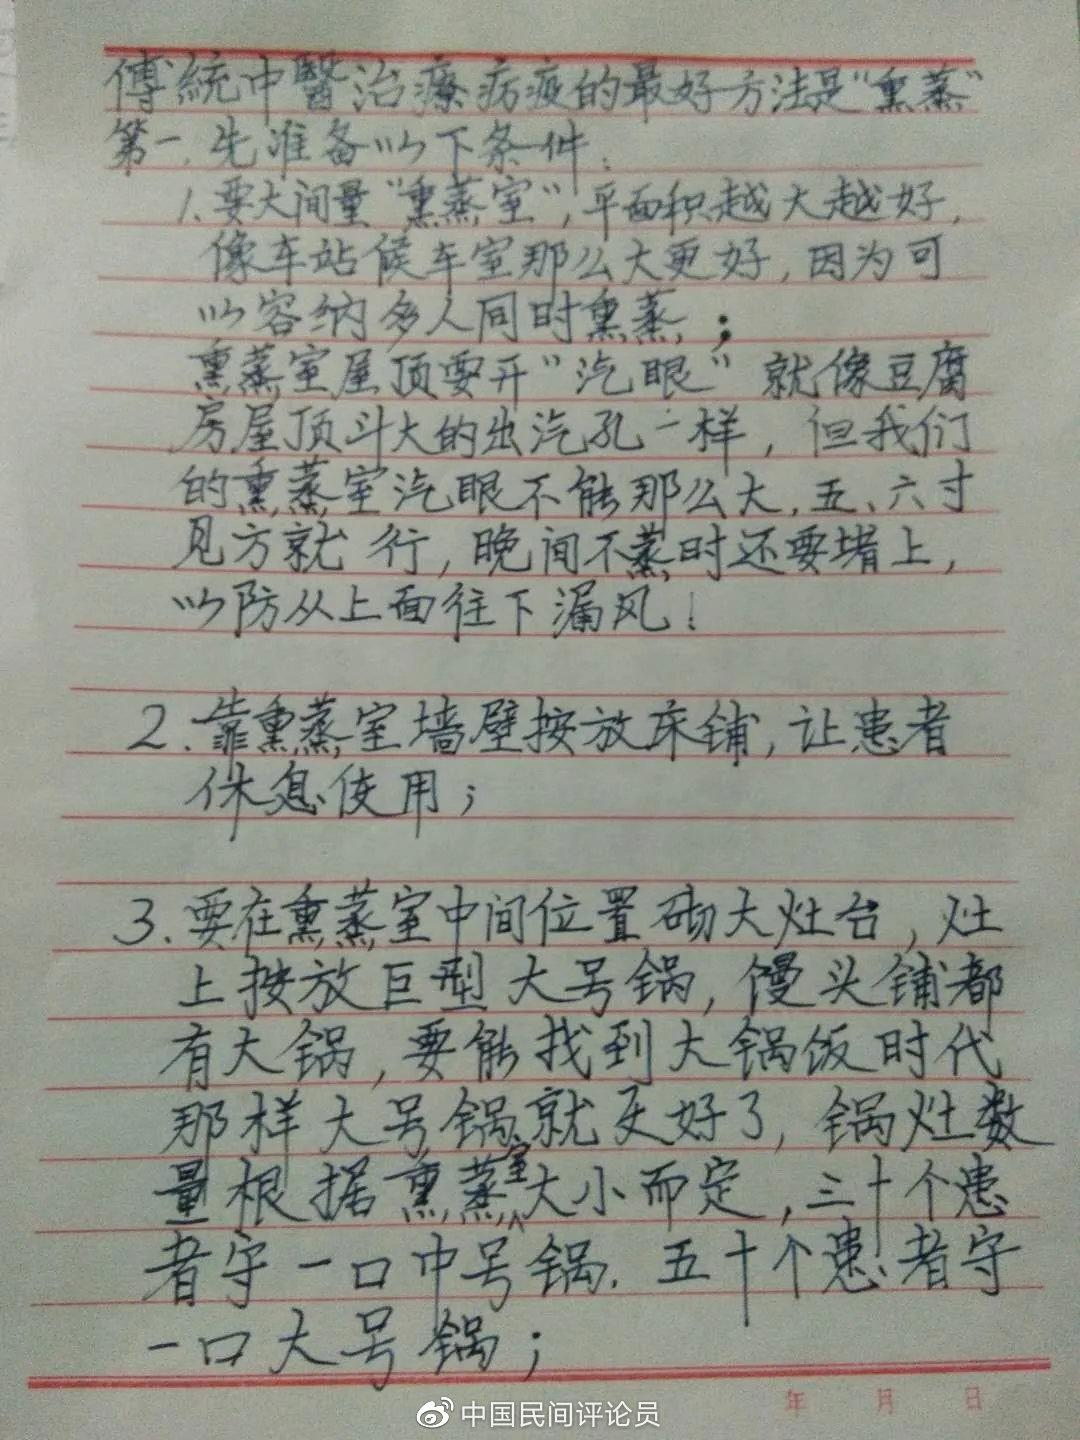 傳統中醫治療病疫的最好方法是“熏蒸”
第一.先准备以下条件:
1.要大间量“熏蒸室”,平面积越大越好,
像车站候车室那么大更好,因为可
以容纳多人同时熏蒸;
熏蒸室屋顶要开“汽眼”就像豆腐
房屋顶斗大的出汽孔一样,但我们
的熏蒸室汽眼不能那么大,五、六寸
见方就行,晚间不蒸时还要堵上,
以防从上面往下漏风!
2.靠熏蒸室墙壁按放床铺,让患者
休息使用;
3.要在熏蒸室中间位置砌大灶台,灶
上按放巨型大号锅,馒头铺都
有大锅,要能找到大锅饭时代
那样大号锅就更好了,锅灶数
量根据熏蒸室大小而定,三十个患
者守一口中号锅.五十个患者守
一口大号锅;
年 月 日
@中国民间评论员